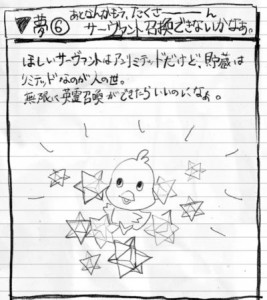 ♥夢⑥ あとなんかもう、たくさーーーん
サーヴァント召喚できないかなぁ。
ほしいサーヴァントはアンリミテッドだけど、貯蔵は
リミテッドなのが人の世。
無限に英霊召喚ができたらいいのになぁ。